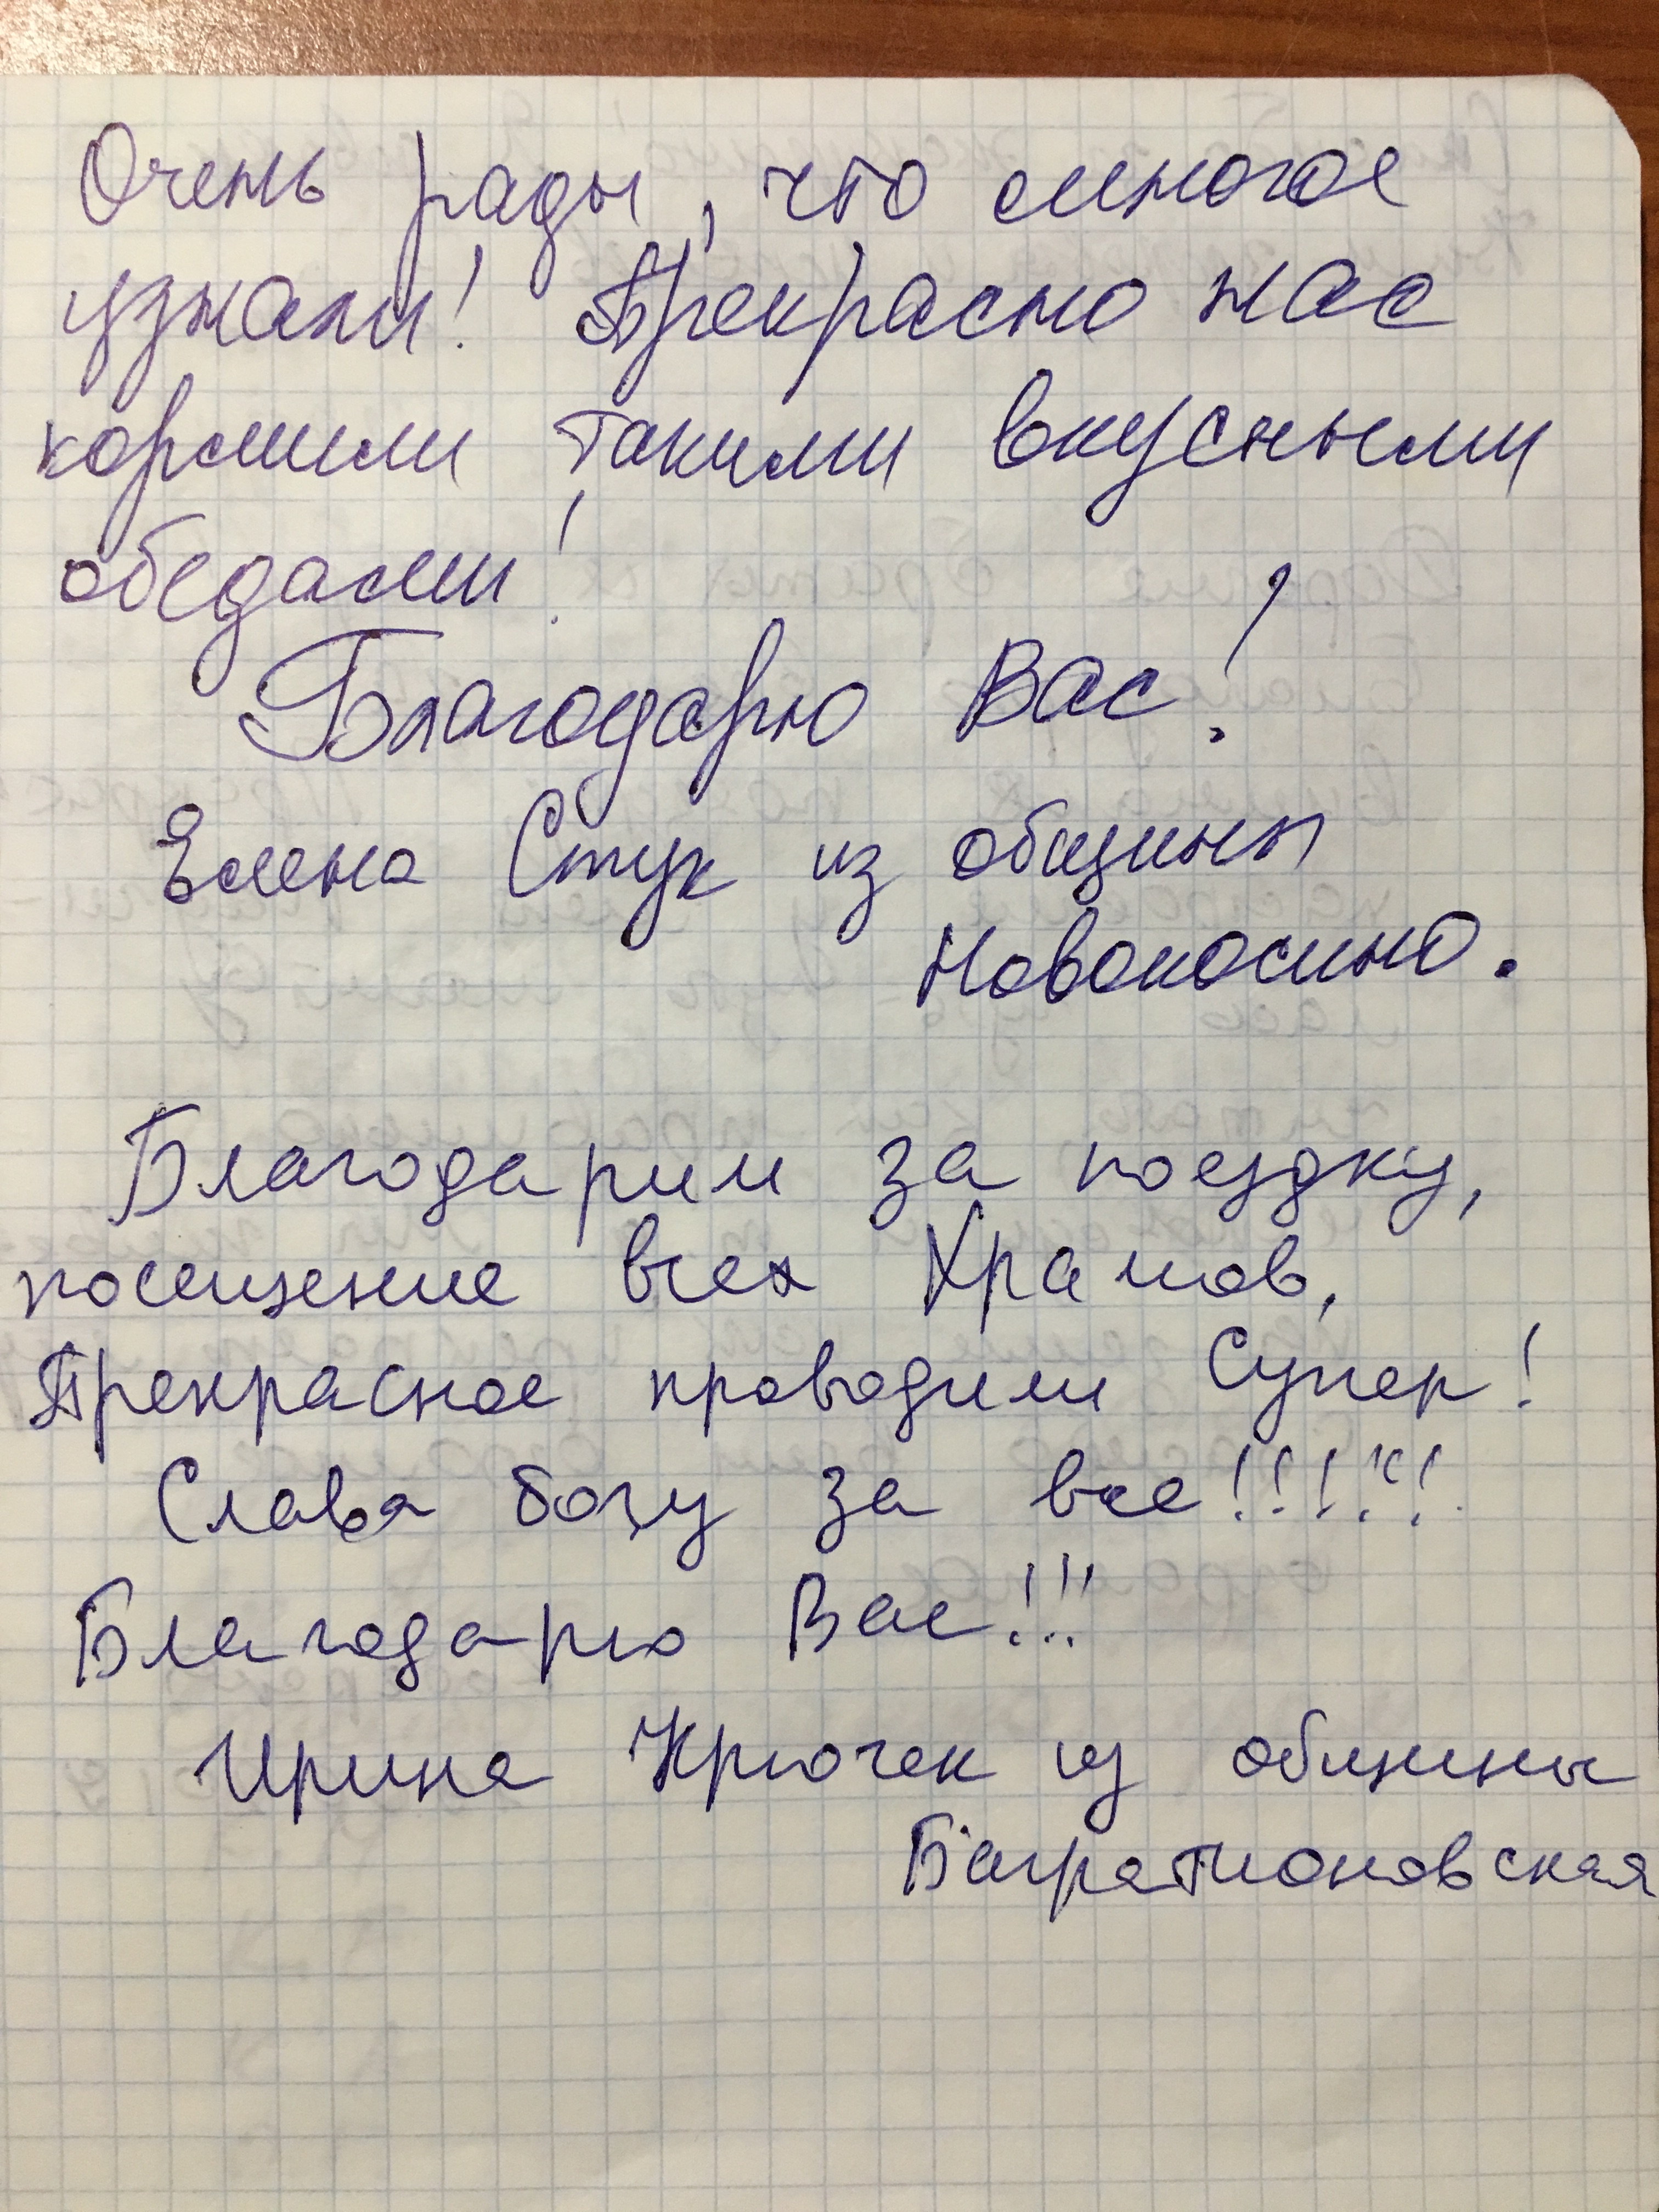 Очень рады, что многое
узнали! Прекрасно нас
кормили такими вкусными
обедами!
Благодарю Вас!
Елена Стук из общины
Новокосино.
Благодарим за поездку,
посещение всех Храмов,
Прекрасное проводили Супер!
Слава богу за все!!!!!!
Благодарю Вас!!!
Ирина Крючек из общины
Багратионовская